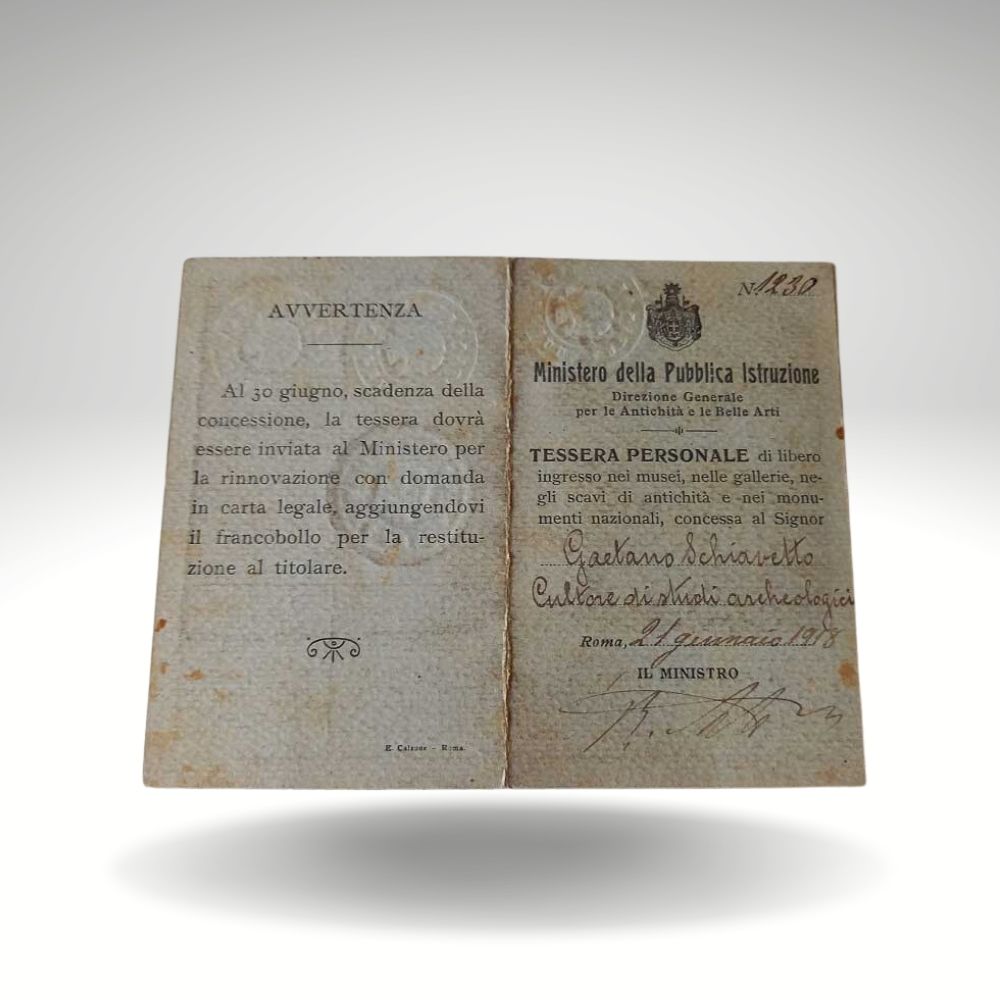 AVVERTENZA
Al 30 giugno, scadenza della
concessione, la tessera dovrà
essere inviata al Ministero per
la rinnovazione con domanda
in carta legale, aggiungendovi
il francobollo per la restitu-
zione al titolare.
E. Calzone - Roma.
N. 1230
Ministero della Pubblica Istruzione
Direzione Generale
per le Antichità e le Belle Arti
TESSERA PERSONALE di libero
ingresso nei musei, nelle gallerie, ne-
gli scavi di antichità e nei monu-
menti nazionali, concessa al Signor
Gaetano Schiavetto
Cultore di studi archeologici
Roma, 21 gennaio 1918
IL MINISTRO